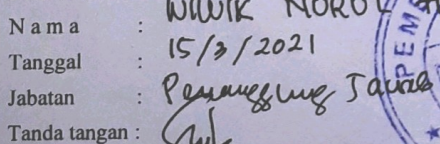 Nama : WIWIK NURUL
Tanggal : 15/3/2021
Jabatan : Penanggung Jawab
Tanda tangan :
PEM